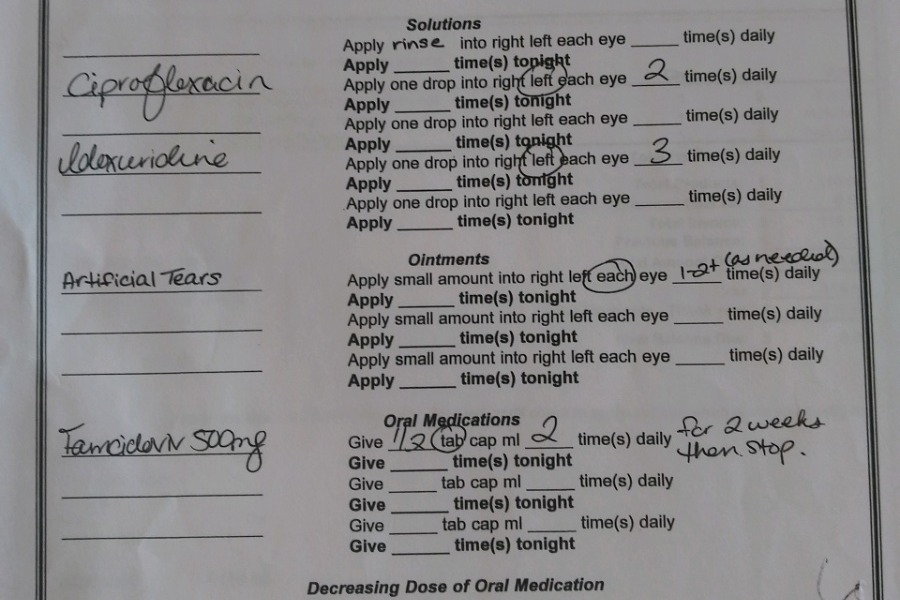 Solutions
Apply rinse into right left each eye _____ time(s) daily
Apply ______ time(s) tonight
Ciprofloxacin Apply one drop into right left each eye 2 time(s) daily
Apply ______ time(s) tonight
Apply one drop into right left each eye _____ time(s) daily
Apply ______ time(s) tonight
Idoxuridine Apply one drop into right left each eye 3 time(s) daily
Apply ______ time(s) tonight
Apply one drop into right left each eye _____ time(s) daily
Apply ______ time(s) tonight
Ointments
Artificial Tears Apply small amount into right left each eye 1-2+ (as needed) time(s) daily
Apply ______ time(s) tonight
Apply small amount into right left each eye _____ time(s) daily
Apply ______ time(s) tonight
Apply small amount into right left each eye _____ time(s) daily
Apply ______ time(s) tonight
Oral Medications
Famciclovir 500mg Give 1/2 tab cap ml 2 time(s) daily for 2 weeks
then stop.
Give ______ time(s) tonight
Give _____ tab cap ml _____ time(s) daily
Give ______ time(s) tonight
Give _____ tab cap ml _____ time(s) daily
Give ______ time(s) tonight
Decreasing Dose of Oral Medication